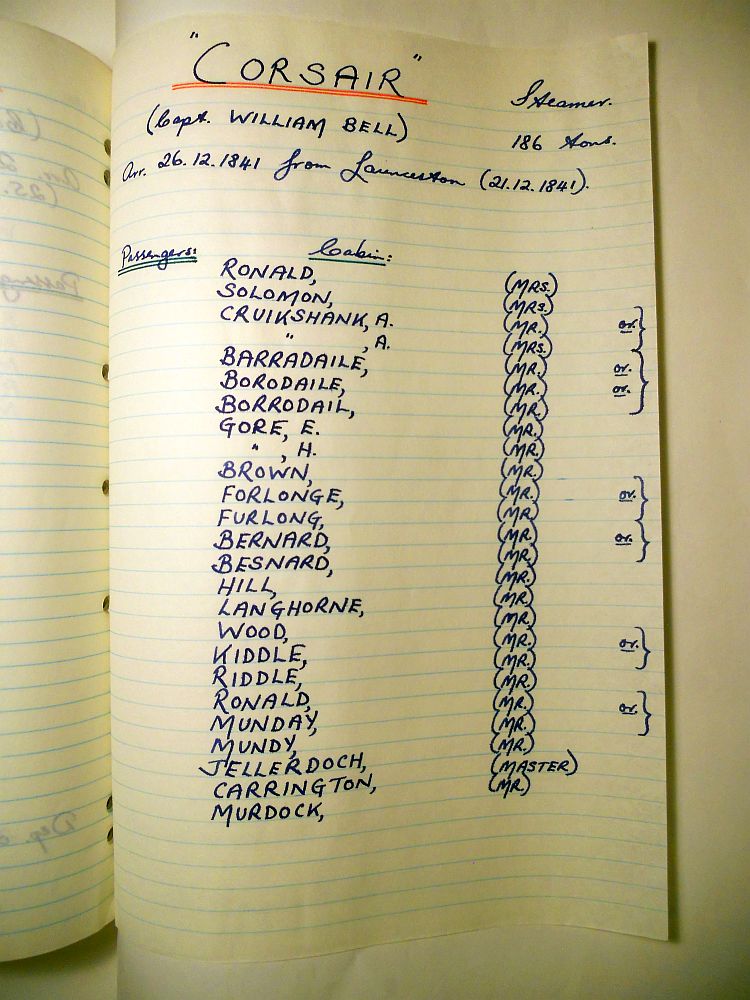 "CORSAIR"
Steamer.
(Capt. WILLIAM BELL)
186 tons.
Arr. 26.12.1841 from Launceston (21.12.1841).
Passengers: Cabin:
RONALD, (MRS.)
SOLOMON, (MRS.)
CRUIKSHANK, A. (MR.) or
" , A. (MRS.)
BARRADAILE, (MR.) or
BORODAILE, (MR.) or
BORRODAIL, (MR.)
GORE, E. (MR.)
" , H. (MR.)
BROWN, (MR.)
FORLONGE, (MR.) or
FURLONG, (MR.)
BERNARD, (MR.) or
BESNARD, (MR.)
HILL, (MR.)
LANGHORNE, (MR.)
WOOD, (MR.)
KIDDLE, (MR.) or
RIDDLE, (MR.)
RONALD, (MR.)
MUNDAY, (MR.) or
MUNDY, (MR.)
JELLERDOCH, (MR.)
CARRINGTON, (MASTER)
MURDOCK, (MR.)